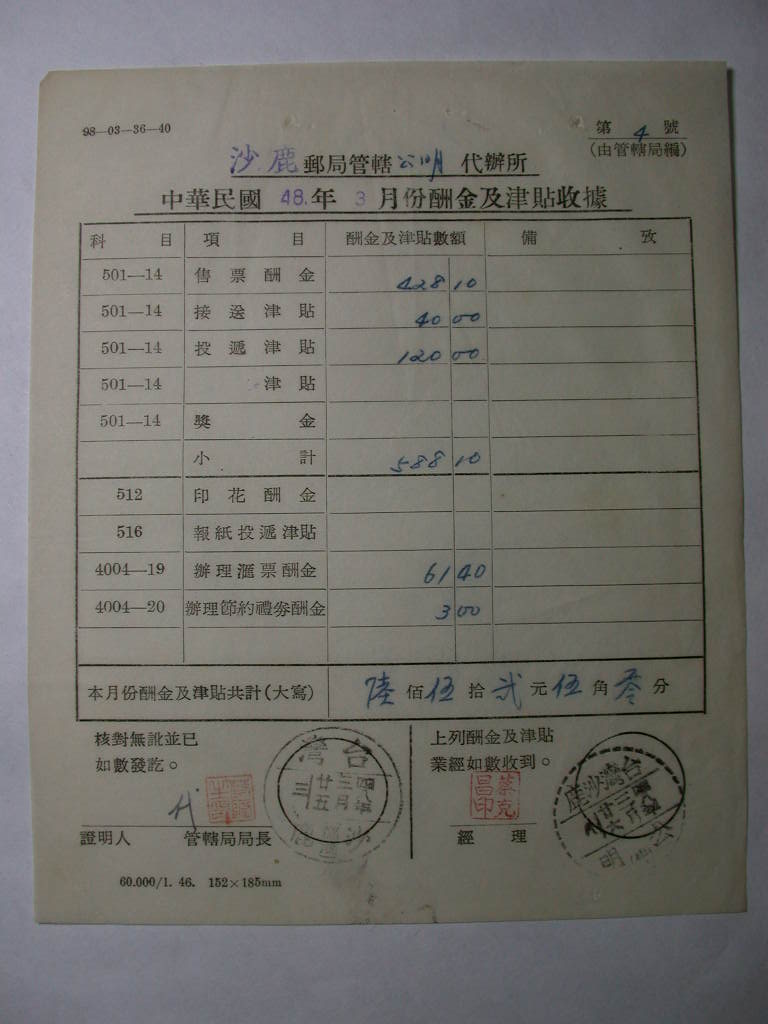 98—03—36—40
第 4 號
(由管轄局編)
沙鹿郵局管轄公明代辦所
中華民國 48.年 3 月份酬金及津貼收據
科 目 項 目 酬金及津貼數額 備 攷
501—14 售票酬金 428 10
501—14 接送津貼 40 00
501—14 投遞津貼 120 00
501—14 津貼
501—14 獎 金
小 計 588 10
512 印花酬金
516 報紙投遞津貼
4004—19 辦理滙票酬金 61 40
4004—20 辦理節約禮券酬金 3 00
本月份酬金及津貼共計(大寫) 陸佰伍拾弍元伍角零分
核對無訛並已
如數發訖。
代
證明人 管轄局局長
台灣
四八年
三月
廿五
沙鹿
上列酬金及津貼
業經如數收到。
蔡克
昌印
經 理
台灣沙鹿
公明
60.000/1. 46. 152×185mm